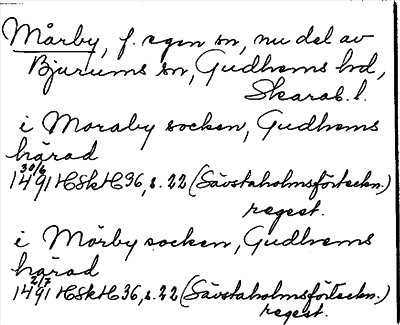 Mårby, f. egen sn, nu del av
Bjurums sn, Gudhems hd,
Skarab. l.
i Moraby socken, Gudhems
härad
30/6
1491 HSkH 36, s. 22 (Sävstaholmsförteckn.)
regest.
i Mörby socken, Gudhems
härad
2/7
1491 HSkH 36, s. 22 (Sävstaholmsförteckn.)
regest.